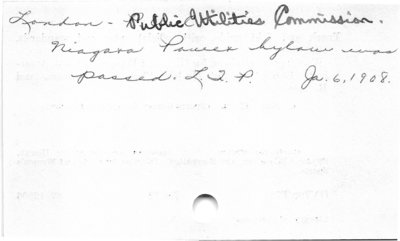 London - Public Utilities Commission.
Niagara Power bylaw was
passed. L.F.P. Ja. 6, 1908.